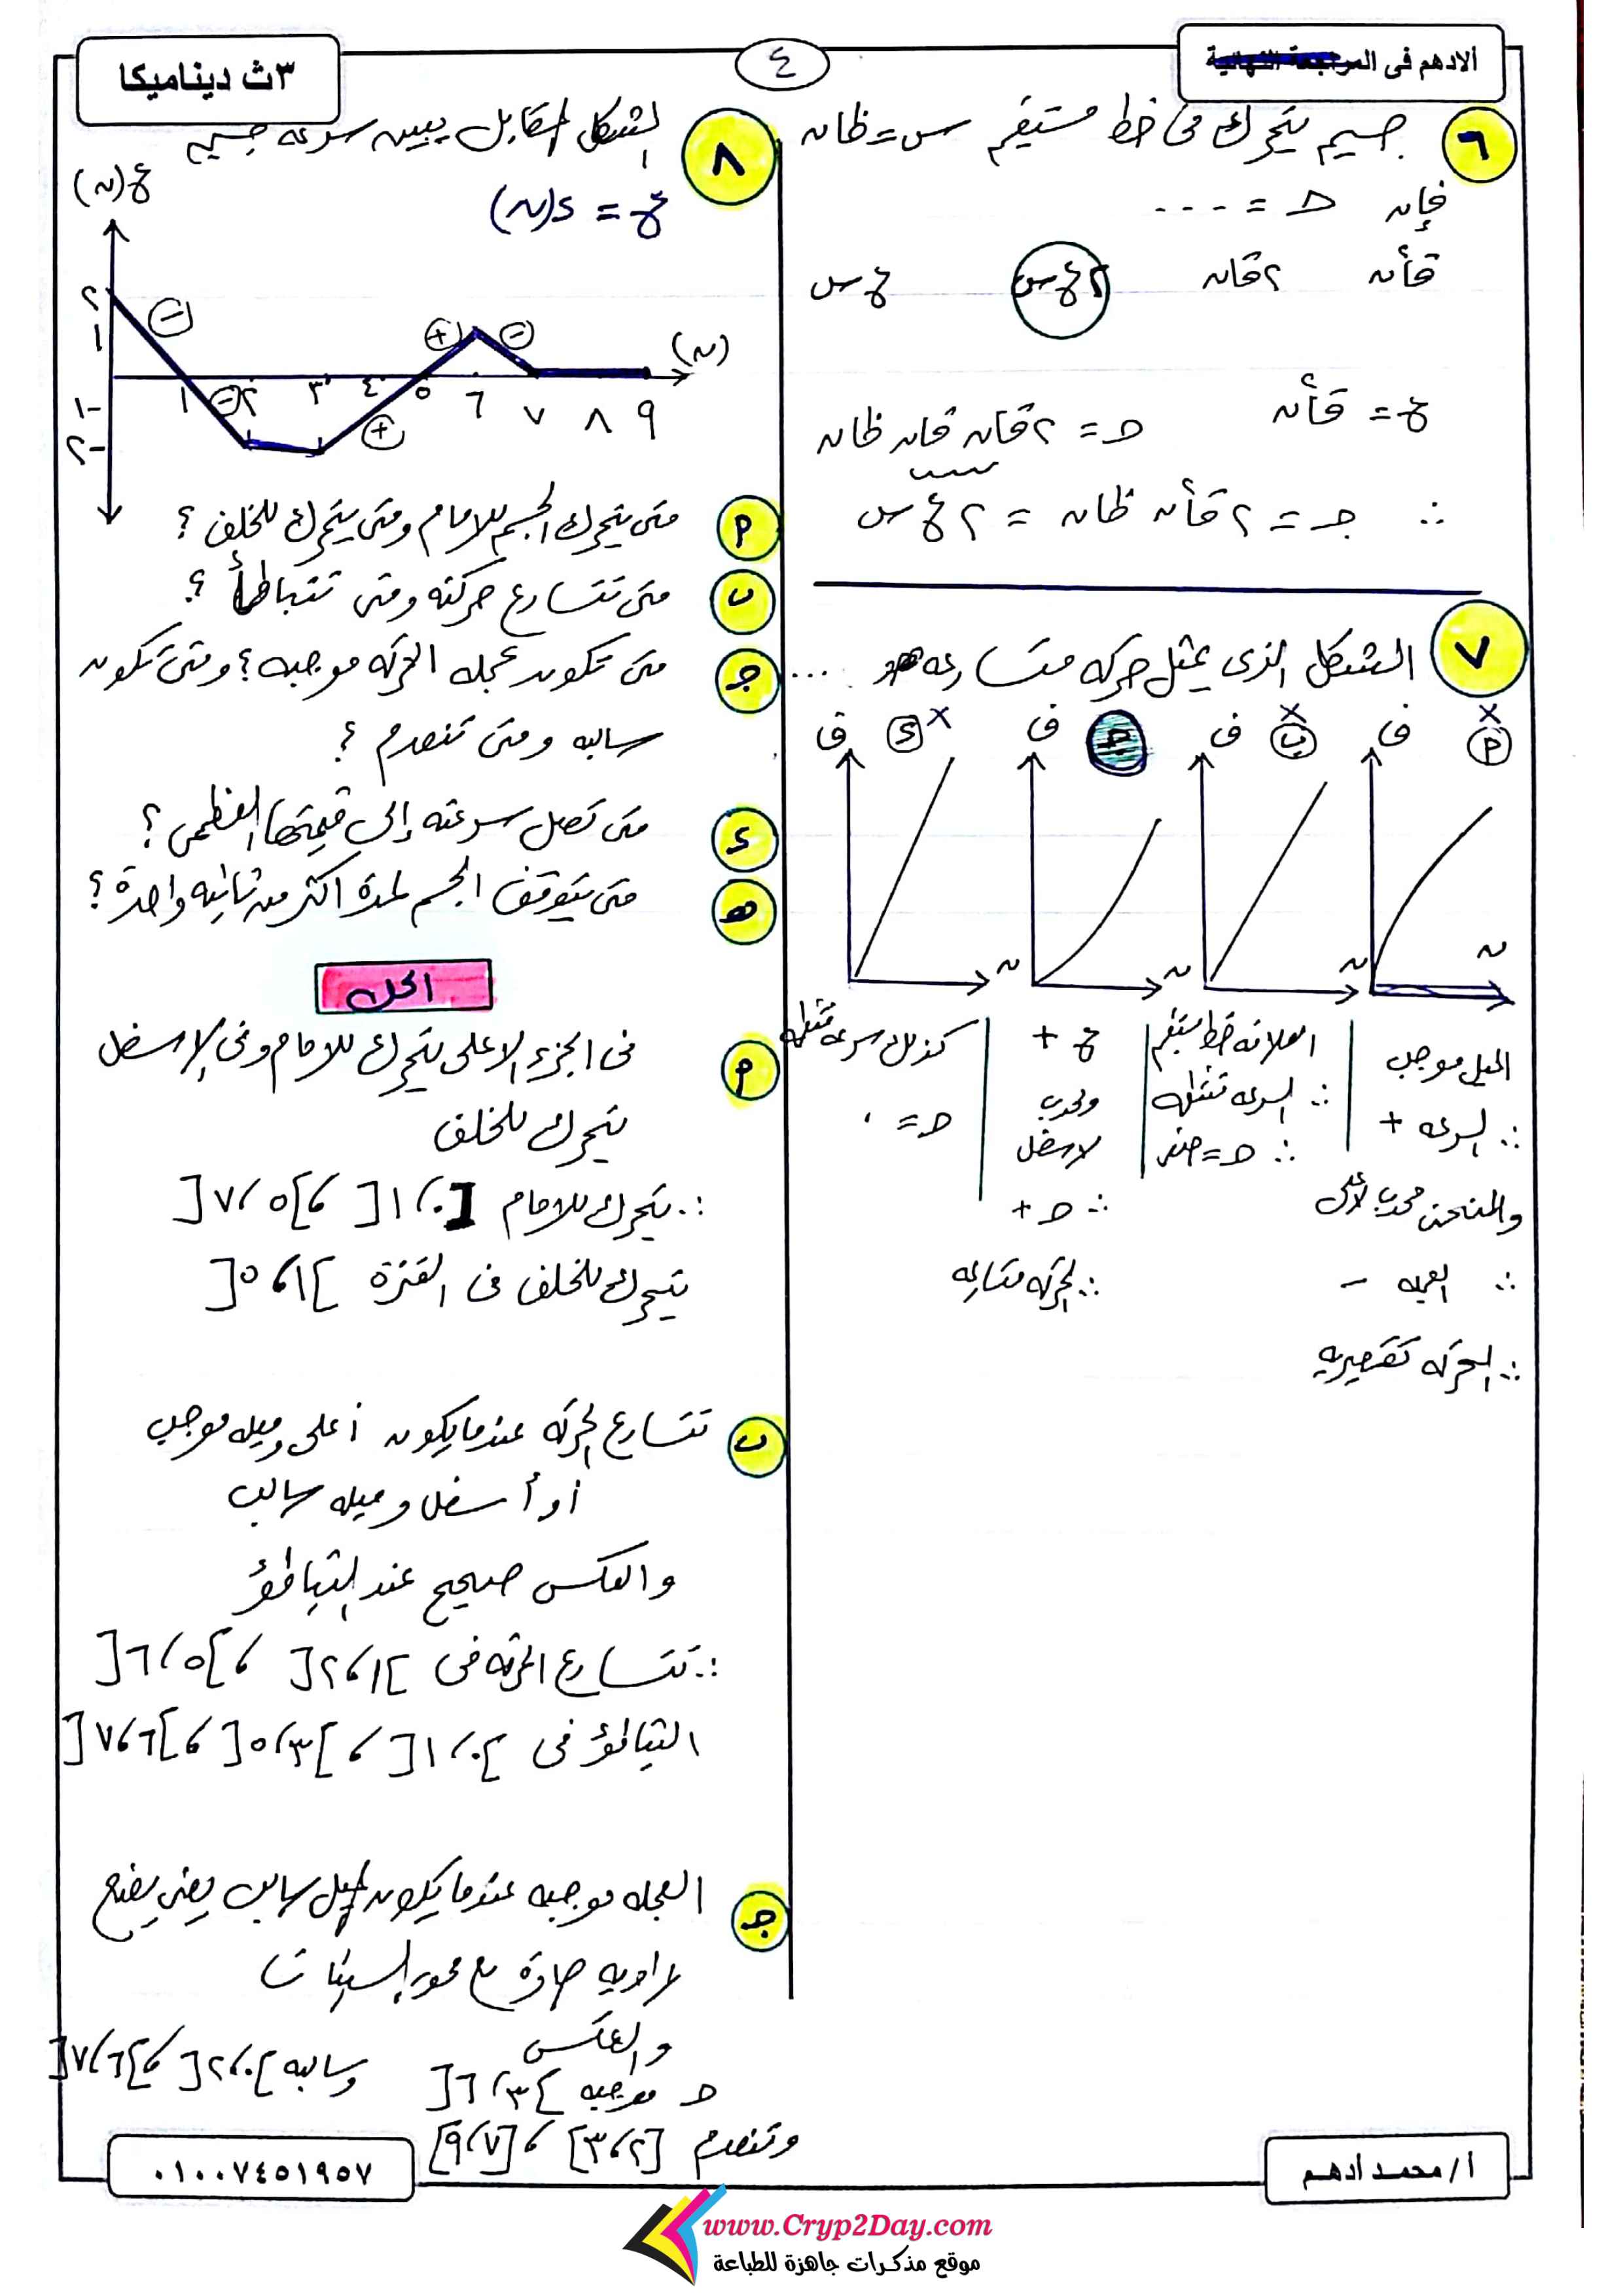 الادهم فى المراجعة النهائية
٤
٣ث ديناميكا
٦ جسيم يتحرك فى خط مستقيم س = ظا ن
فإن ح = ....
قا٢ ن
٢ قا ن
٢ ع س
ع س
ع = قا٢ ن
ح = ٢ قا ن قا ن ظا ن
∴ جـ = ٢ قا٢ ن ظا ن = ٢ ع س
٧ الشكل الذى يمثل حركه متسارعه هو ...
x x x
أ ف ب ف جـ ف د ف
ن ن ن
الميل موجب
∴ السرعه +
والمنحنى محدب لأعلى
∴ العجله -
∴ الحركه تقصيريه
العلاقه خط مستقيم
∴ السرعه منتظمه
∴ ح = صفر
ع +
ومحدب
لاسفل
∴ ح +
∴ الحركه متسارعه
كذلك سرعه منتظمه
ح = ٠
٨ الشكل المقابل يبين سرعه جسيم
ع = د(ن)
ع(ن)
٢
١
١-
٢-
١ ٢ ٣ ٤ ٥ ٦ ٧ ٨ ٩
(ن)
أ متى يتحرك الجسم للامام ومتى يتحرك للخلف ؟
ب متى تتسارع حركته ومتى تتباطأ ؟
جـ متى تكون عجله الحركه موجبه ؟ ومتى تكون
سالبه ومتى تنعدم ؟
د متى تصل سرعته إلى قيمتها العظمى ؟
هـ متى يتوقف الجسم لمدة اكثر من ثانيه واحدة ؟
الحل
أ فى الجزء الاعلى يتحرك للامام وفى الاسفل
يتحرك للخلف
∴ يتحرك للامام [٠، ١[ ، ]٥، ٧[
يتحرك للخلف فى الفترة ]١، ٥[
ب تتسارع الحركه عندما يكون أعلى وميله موجب
أو أسفل وميله سالب
والعكس صحيح عند التباطؤ
∴ تتسارع الحركه فى ]١، ٢[ ، ]٥، ٦[
التباطؤ فى ]٠، ١[ ، ]٣، ٥[ ، ]٦، ٧[
جـ العجله موجبه عندما يكون الميل سالب يعنى يصنع
زاويه حادة مع محور السينات
والعكس
ح موجبه ]٣، ٦[ وسالبه ]٠، ٢[ ، ]٦، ٧[
وتنعدم [٢، ٣] ، [٧، ٩]
أ/ محمد أدهم
٠١٠٠٧٤٥١٩٥٧
www.Cryp2Day.com
موقع مذكرات جاهزة للطباعة